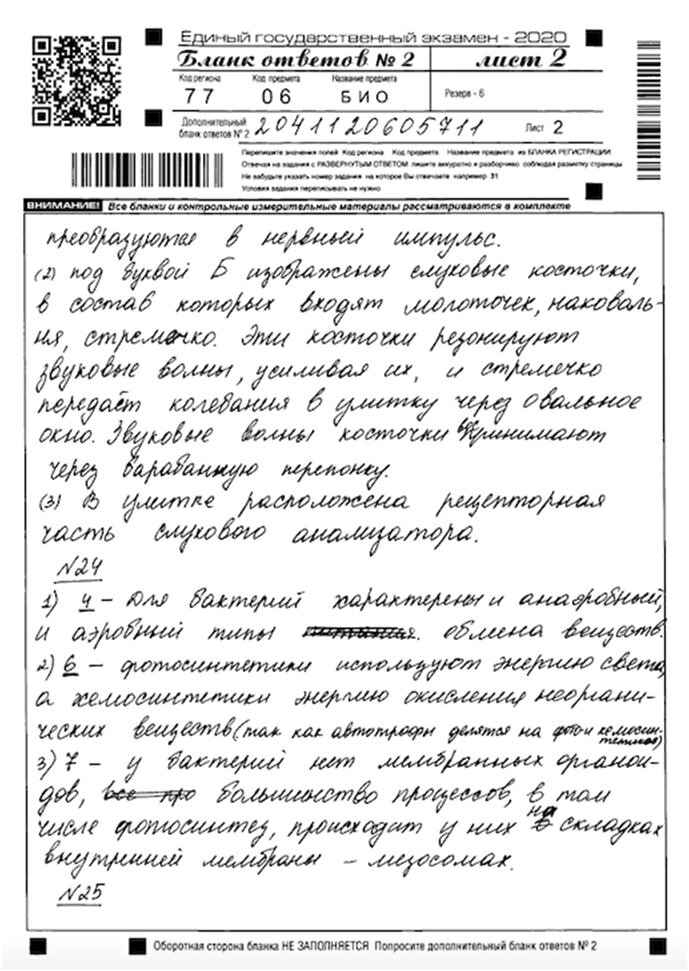 Единый государственный экзамен - 2020
Бланк ответов № 2 лист 2
Код региона Код предмета Название предмета
77 06 БИО Резерв - 6
Дополнительный
бланк ответов № 2 2041120605711 Лист 2
Перепишите значения полей Код региона Код предмета Название предмета из БЛАНКА РЕГИСТРАЦИИ
Отвечая на задания с РАЗВЕРНУТЫМ ОТВЕТОМ пишите аккуратно и разборчиво соблюдая разметку страницы
Не забудьте указать номер задания на которое Вы отвечаете например 31
Условия задания переписывать не нужно
ВНИМАНИЕ! Все бланки и контрольные измерительные материалы рассматриваются в комплекте
преобразуются в нервный импульс.
(2) под буквой Б изображены слуховые косточки,
в состав которых входят молоточек, наковаль-
ня, стремечко. Эти косточки резонируют
звуковые волны, усиливая их, и стремечко
передаёт колебания в улитку через овальное
окно. Звуковые волны косточки принимают
через барабанную перепонку.
(3) В улитке расположена рецепторная
часть слухового анализатора.
№24
1) 4 – Для бактерий характерены и анаэробный,
и аэробный типы обмена веществ.
2) 6 – фотосинтетики используют энергию света,
а хемосинтетики энергию окисления неоргани-
ческих веществ (так как автотрофы делятся на фото и хемосин-
тетиков)
3) 7 – у бактерий нет мембранных органои-
дов, все про большинство процессов, в том
числе фотосинтез, происходит у них на складках
внутренней мембраны – мезосомах.
№25
Оборотная сторона бланка НЕ ЗАПОЛНЯЕТСЯ Попросите дополнительный бланк ответов № 2